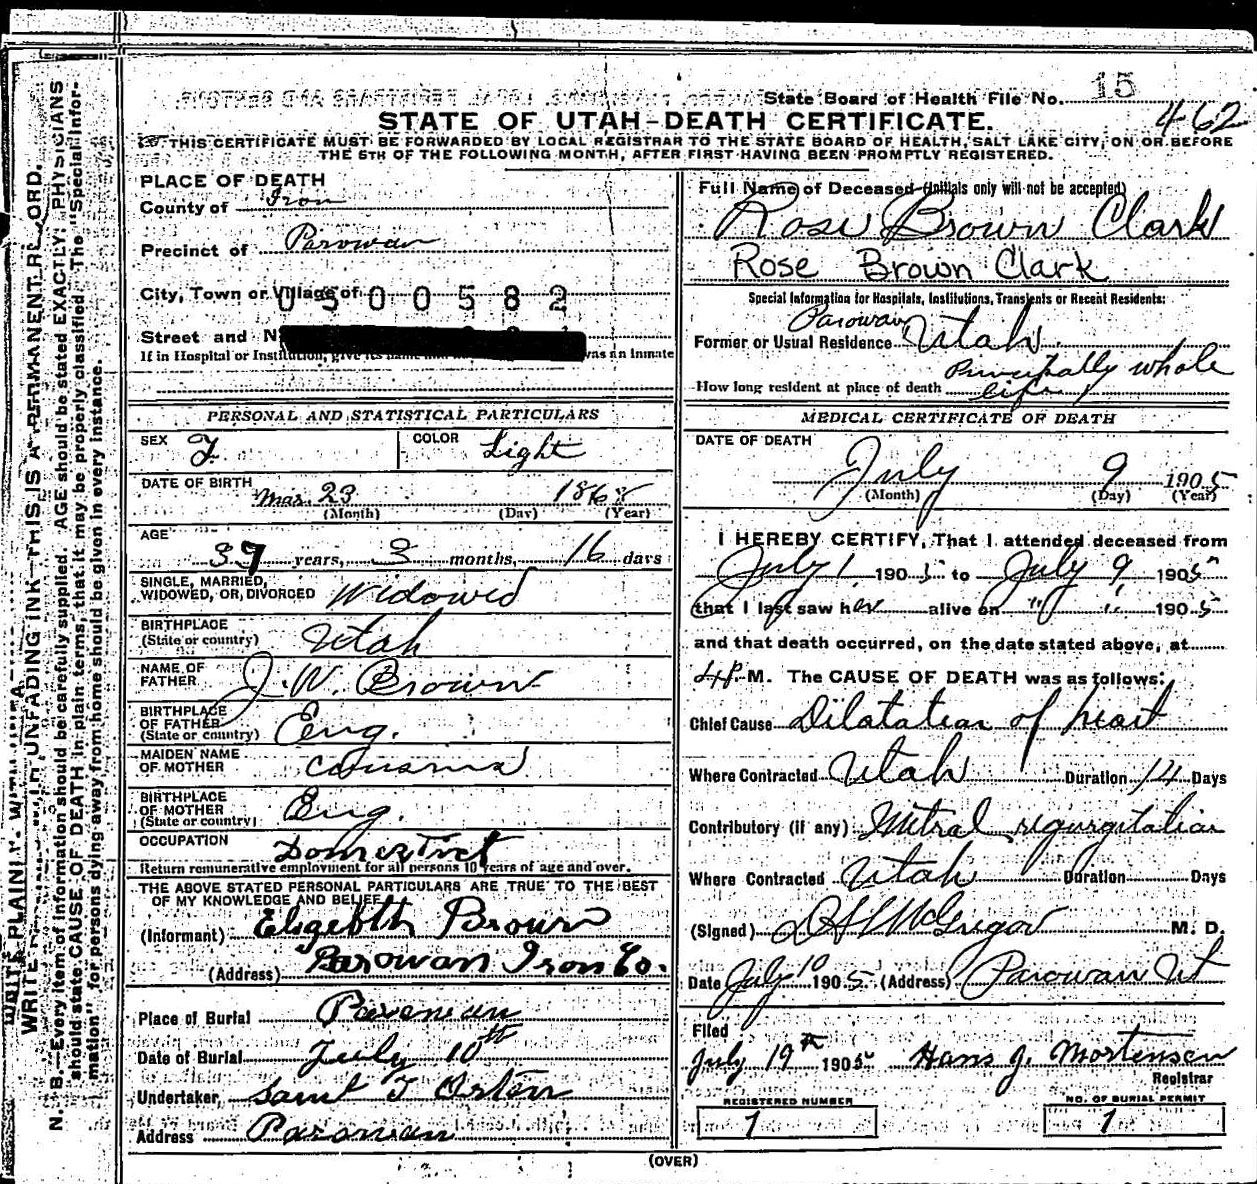 State Board of Health File No. 15
462
STATE OF UTAH-DEATH CERTIFICATE.
THIS CERTIFICATE MUST BE FORWARDED BY LOCAL REGISTRAR TO THE STATE BOARD OF HEALTH, SALT LAKE CITY, ON OR BEFORE
THE 5TH OF THE FOLLOWING MONTH, AFTER FIRST HAVING BEEN PROMPTLY REGISTERED.
PLACE OF DEATH
County of Iron
Precinct of Parowan
City, Town or Village of
0500582
Street and N
If in Hospital or Institution, give its name was an inmate
PERSONAL AND STATISTICAL PARTICULARS
SEX F. COLOR Light
DATE OF BIRTH Mar. 23
(Month) (Day) (Year)
AGE
years, 3 months, 16 days
SINGLE, MARRIED,
WIDOWED, OR, DIVORCED Widowed
BIRTHPLACE
(State or country) Utah
NAME OF
FATHER J. W. Brown
BIRTHPLACE
OF FATHER
(State or country) Eng.
MAIDEN NAME
OF MOTHER
BIRTHPLACE
OF MOTHER
(State or country) Eng.
OCCUPATION Domestict
Return remunerative employment for all persons 10 years of age and over.
THE ABOVE STATED PERSONAL PARTICULARS ARE TRUE TO THE BEST
OF MY KNOWLEDGE AND BELIEF
(Informant) Elizebth Brown
(Address) Parowan Iron Co.
Place of Burial Parowan
Date of Burial July 10th
Undertaker, Saml T Orten
Address Parowan
Full Name of Deceased (Initials only will not be accepted)
Rose Brown Clark
Rose Brown Clark
Special Information for Hospitals, Institutions, Transients or Recent Residents:
Former or Usual Residence Parowan Utah
How long resident at place of death Principally whole
life
MEDICAL CERTIFICATE OF DEATH
DATE OF DEATH
July 9 1905
(Month) (Day) (Year)
I HEREBY CERTIFY, That I attended deceased from
July 1. 1905 to July 9 1905
that I last saw her alive on " " 1905
and that death occurred, on the date stated above, at
4P. M. The CAUSE OF DEATH was as follows:
Chief Cause Dilatation of heart
Where Contracted Utah Duration 14 Days
Contributory (if any) Mitral regurgitation
Where Contracted Utah Duration Days
(Signed) McGregor M. D.
Date July 10 1905 (Address) Parowan Ut
Filed
July 19th 1905 Hans J. Mortensen
Registrar
REGISTERED NUMBER
1
NO. OF BURIAL PERMIT
1
(OVER)
WRITE PLAINLY, WITH UNFADING INK—THIS IS A PERMANENT RECORD.
N. B.—Every item of information should be carefully supplied. AGE should be stated EXACTLY. PHYSICIANS
should state CAUSE OF DEATH in plain terms, that it may be properly classified. The "Special Infor-
mation" for persons dying away from home should be given in every instance.